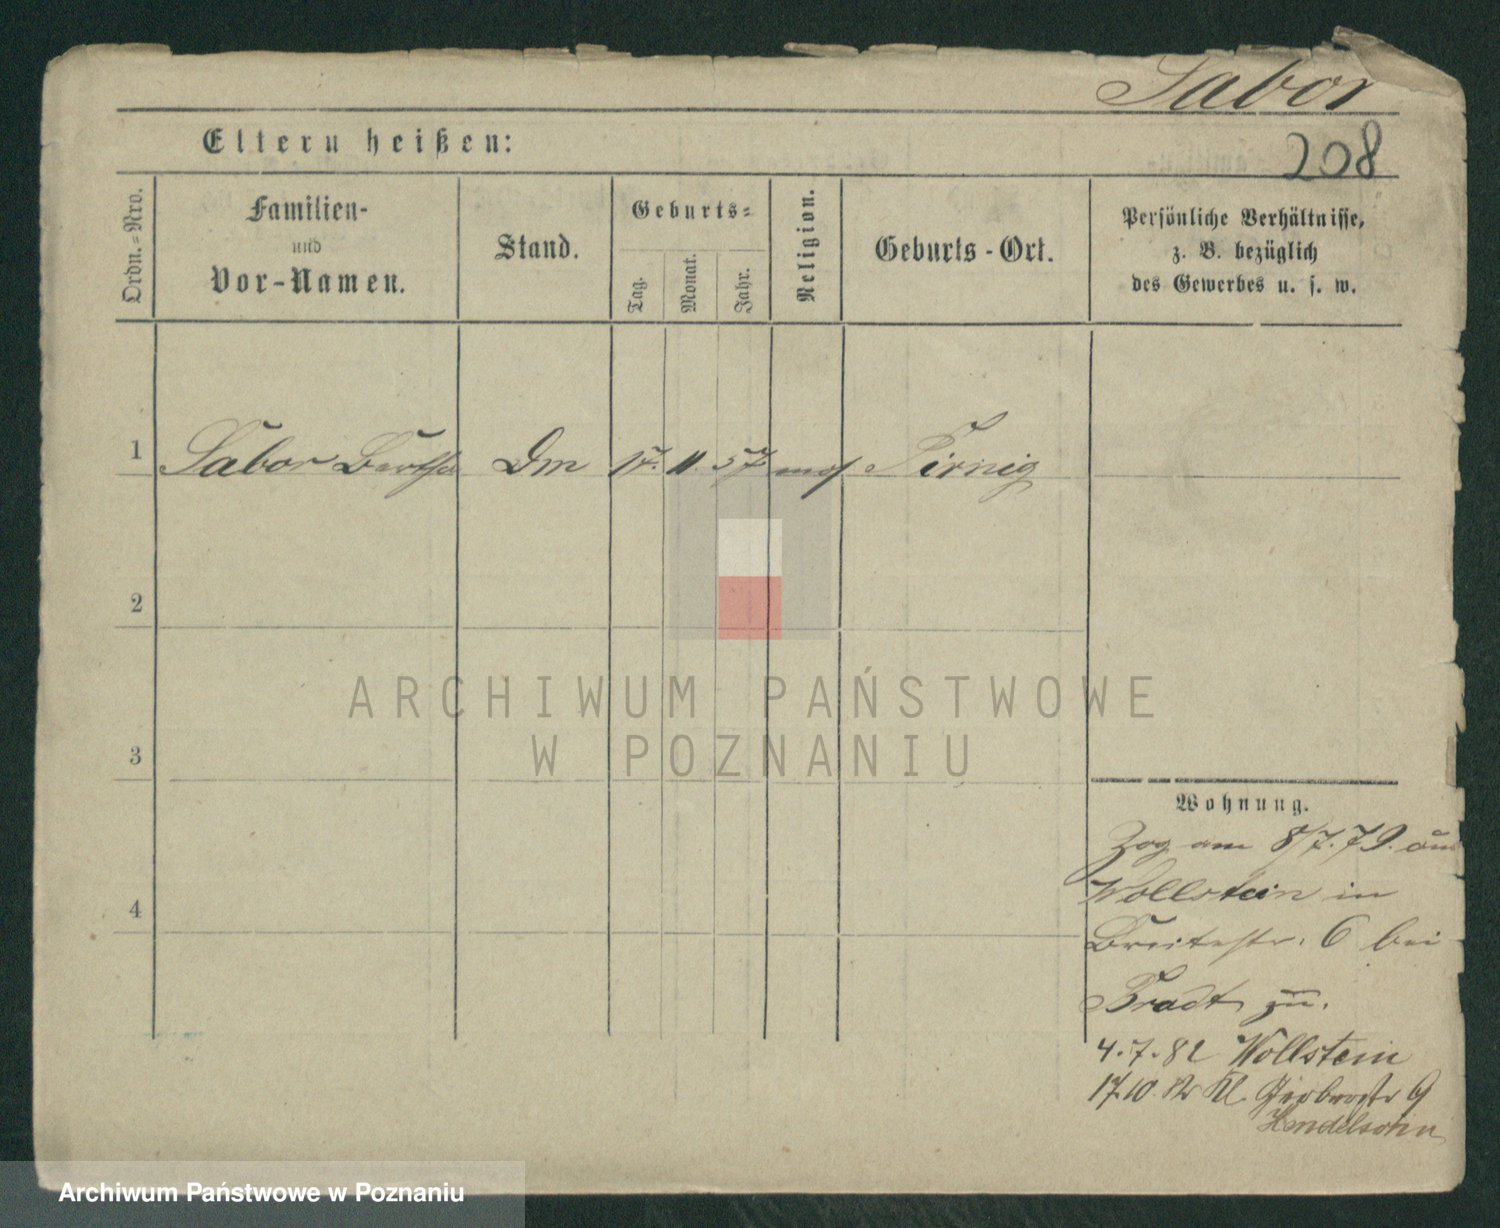 Sabor
Eltern heißen:
208
Ordn.=Nro.
Familien-
und
Vor-Namen.
Stand.
Geburts=
Tag.
Monat.
Jahr.
Religion.
Geburts-Ort.
Persönliche Verhältnisse,
z. B. bezüglich
des Gewerbes u. s. w.
1 Sabor Bertha Dm 17. 11 57 mos Tirnig
2
3
4
ARCHIWUM PAŃSTWOWE
W POZNANIU
Wohnung.
Zog am 8/7.79. aus
Wollstein in
Breitestr. 6 bei
Bradt zu.
4.7.82 Wollstein
17.10. 82 Kl. Gerberstr 9
Mendelsohn
Archiwum Państwowe w Poznaniu